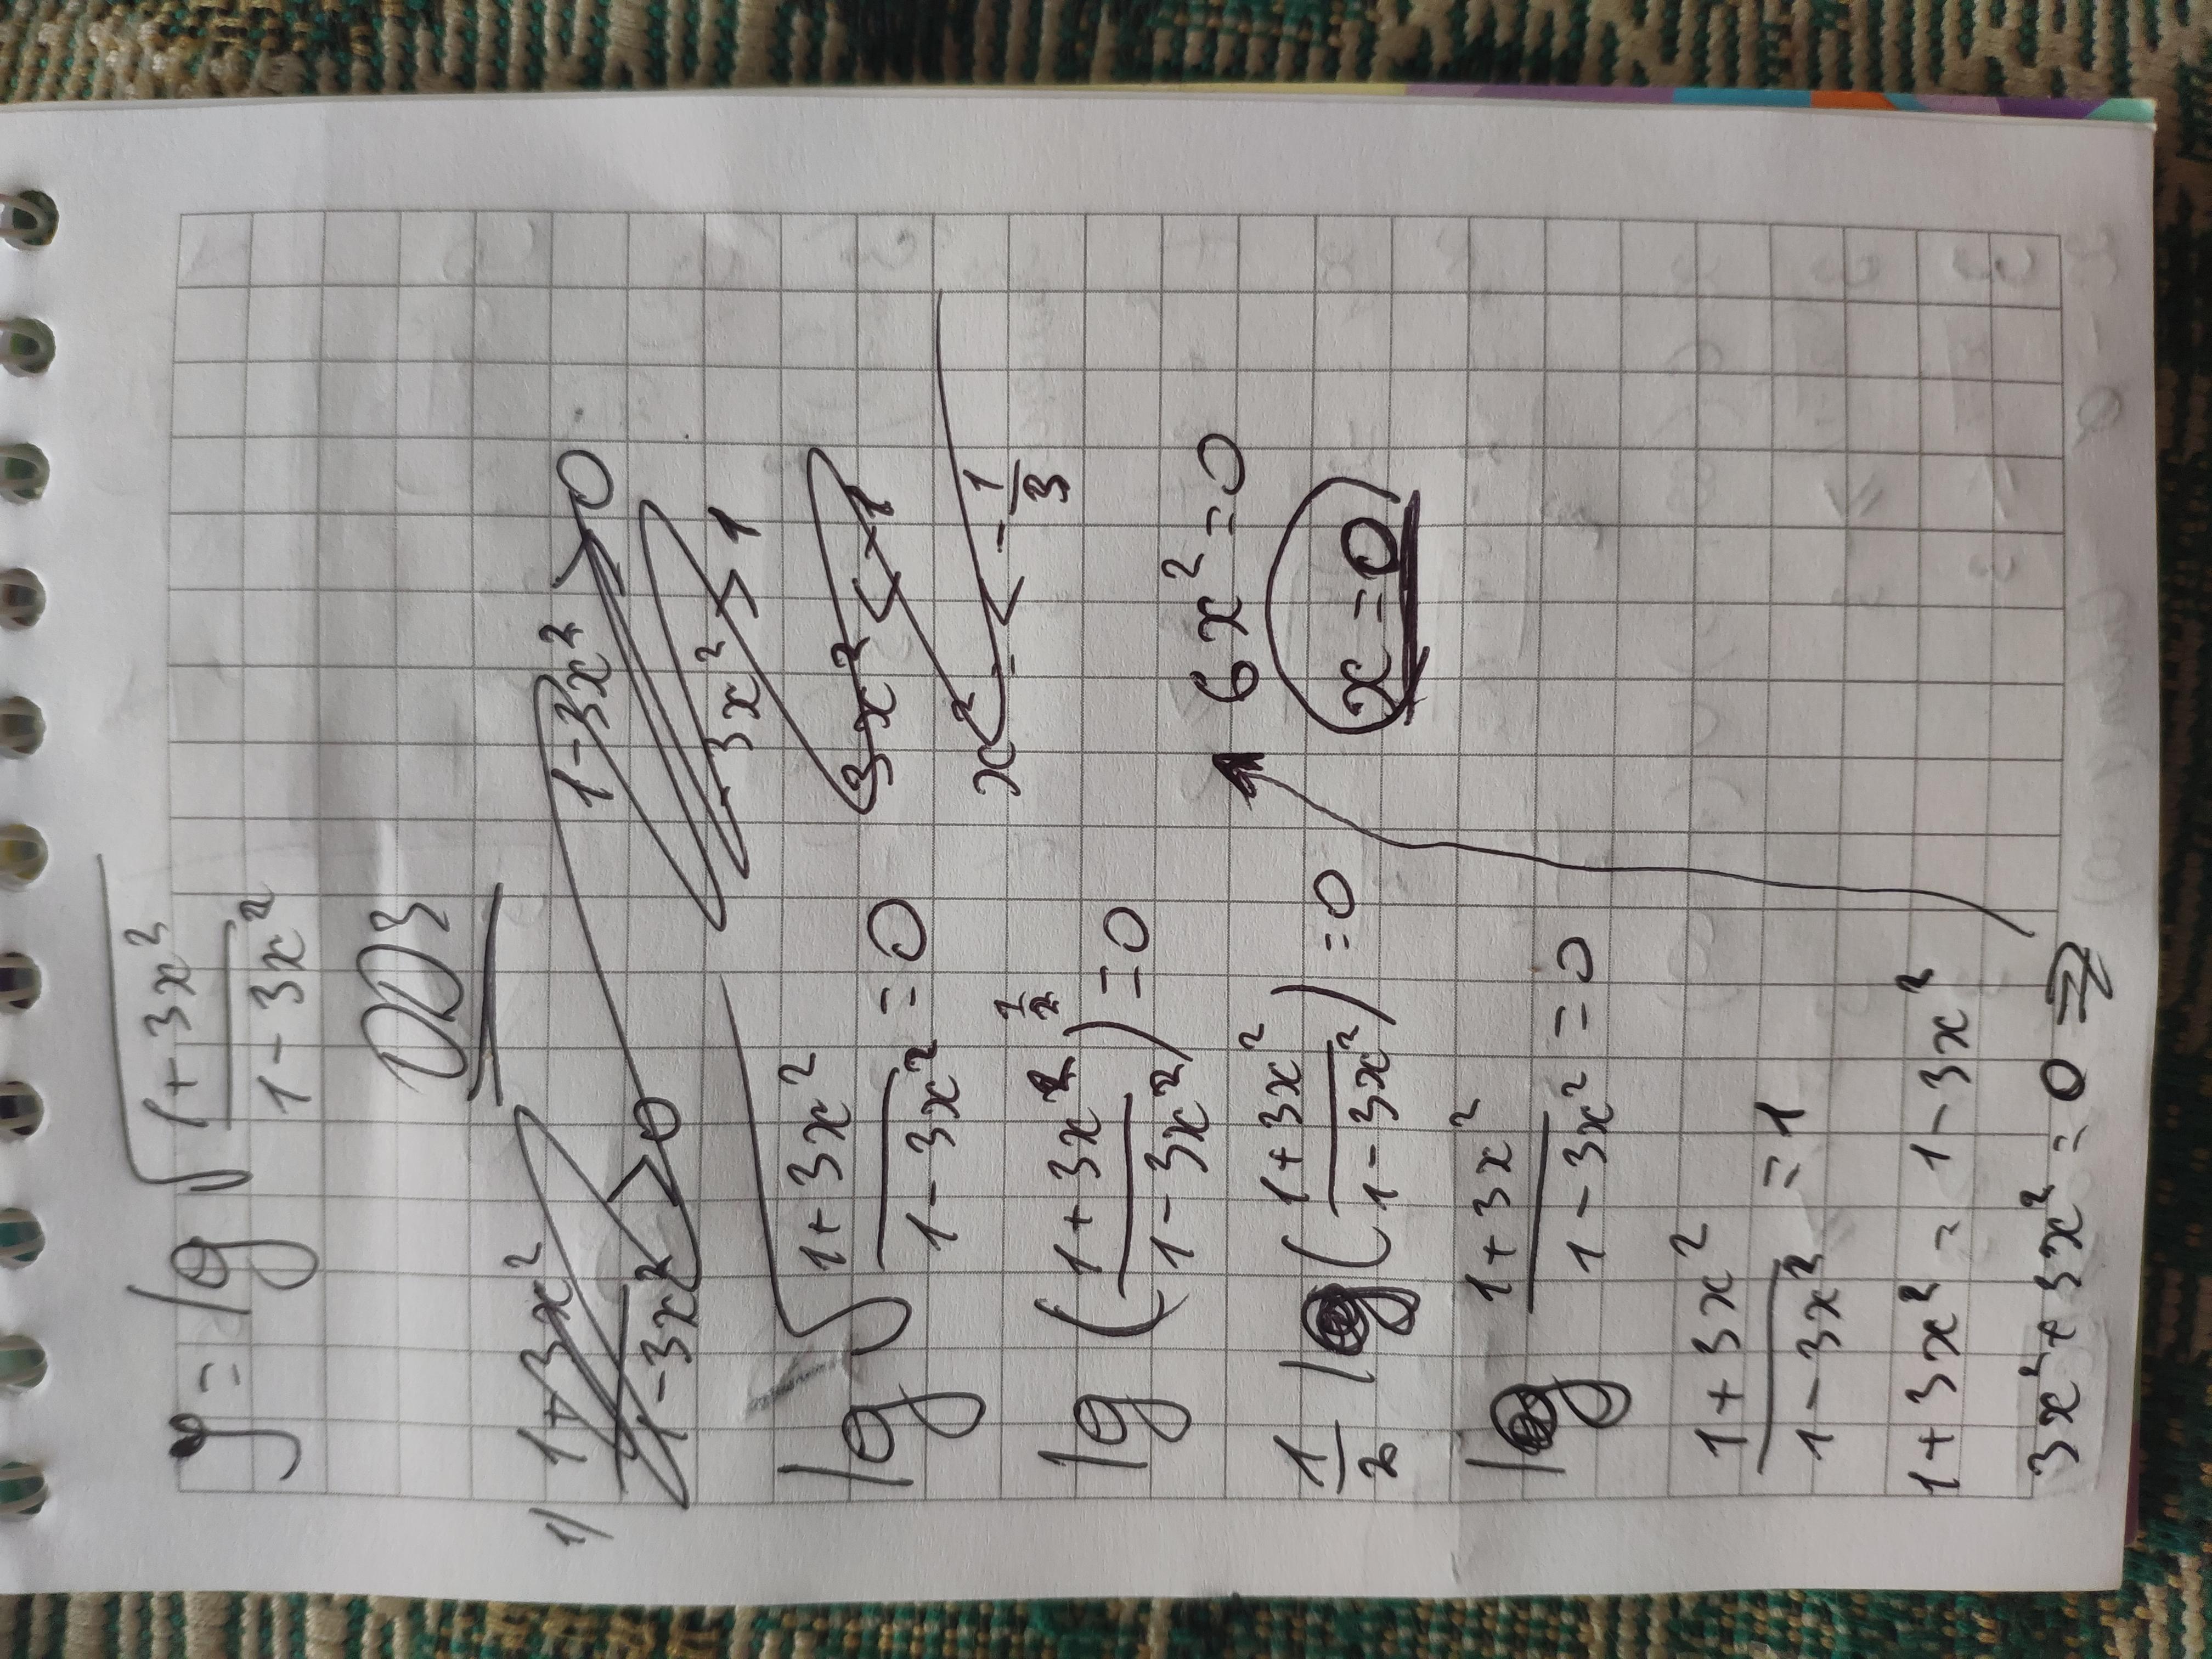 y = lg √((1+3x²)/(1-3x²))
ОДЗ
1) (1+3x²)/(1-3x²) > 0
1-3x² > 0
-3x² > 1
3x² < -1
x² < -1/3
lg √((1+3x²)/(1-3x²)) = 0
lg ((1+3x²)/(1-3x²))^(1/2) = 0
1/2 lg ((1+3x²)/(1-3x²)) = 0
lg (1+3x²)/(1-3x²) = 0
(1+3x²)/(1-3x²) = 1
1+3x² = 1-3x²
3x²+3x² = 0 ⇒
6x² = 0
x = 0